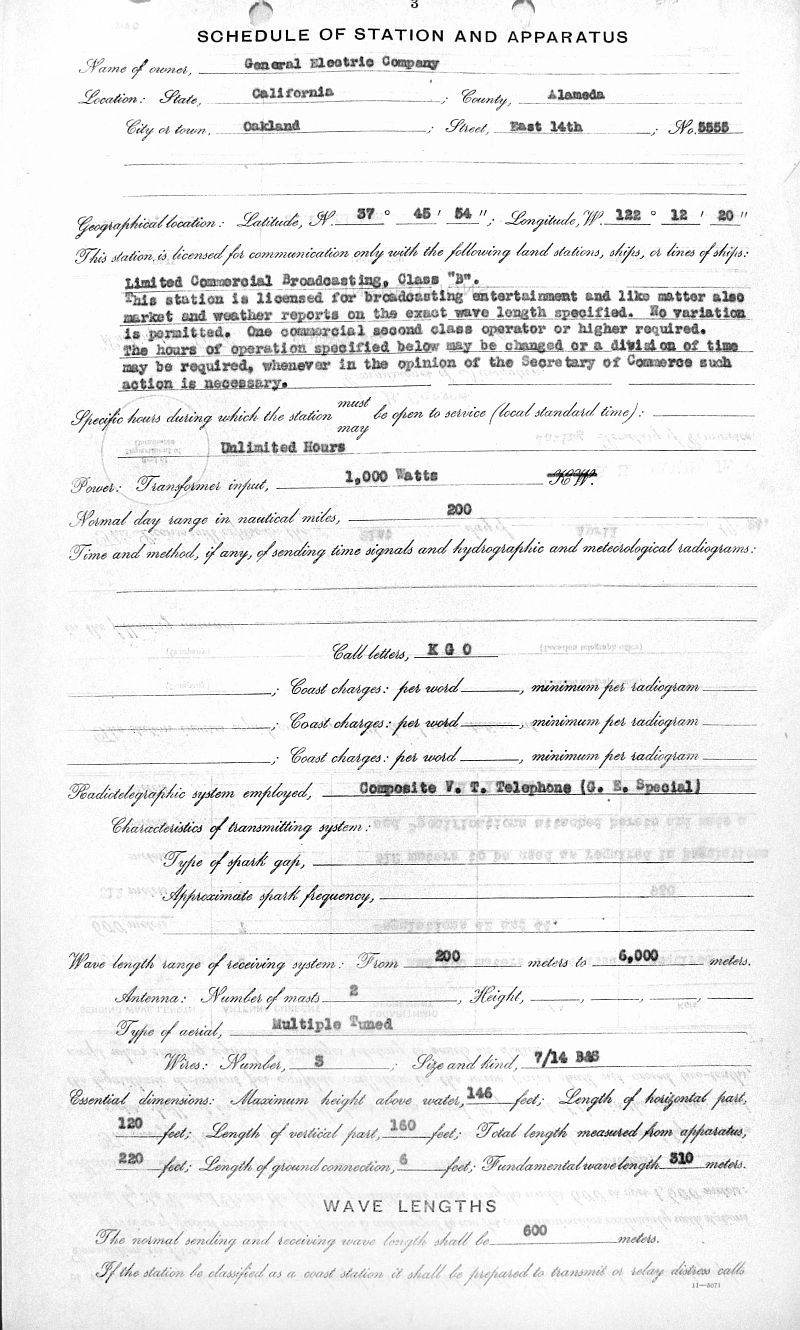 3
SCHEDULE OF STATION AND APPARATUS
Name of owner, General Electric Company
Location: State, California ; County, Alameda
City or town, Oakland ; Street, East 14th ; No. 5555
Geographical location: Latitude, N. 37 ° 45 ' 54 "; Longitude, W. 122 ° 12 ' 20 "
This station is licensed for communication only with the following land stations, ships, or lines of ships:
Limited Commercial Broadcasting, Class "B".
This station is licensed for broadcasting entertainment and like matter also
market and weather reports on the exact wave length specified. No variation
is permitted. One commercial second class operator or higher required.
The hours of operation specified below may be changed or a division of time
may be required, whenever in the opinion of the Secretary of Commerce such
action is necessary.
Specific hours during which the station must may be open to service (local standard time):
Unlimited Hours
Power: Transformer input, 1,000 Watts K.W.
Normal day range in nautical miles, 200
Time and method, if any, of sending time signals and hydrographic and meteorological radiograms:
Call letters, K G O
; Coast charges: per word , minimum per radiogram
; Coast charges: per word , minimum per radiogram
; Coast charges: per word , minimum per radiogram
Radiotelegraphic system employed, Composite V. T. Telephone (G. E. Special)
Characteristics of transmitting system:
Type of spark gap,
Approximate spark frequency,
Wave length range of receiving system: From 200 meters to 6,000 meters.
Antenna: Number of masts 2 , Height, , , ,
Type of aerial, Multiple Tuned
Wires: Number, 3 ; Size and kind, 7/14 B&S
Essential dimensions: Maximum height above water, 146 feet; Length of horizontal part,
120 feet; Length of vertical part, 160 feet; Total length measured from apparatus,
220 feet; Length of ground connection, 6 feet; Fundamental wave length 310 meters.
WAVE LENGTHS
The normal sending and receiving wave length shall be 600 meters.
If the station be classified as a coast station it shall be prepared to transmit or relay distress calls
11—5071